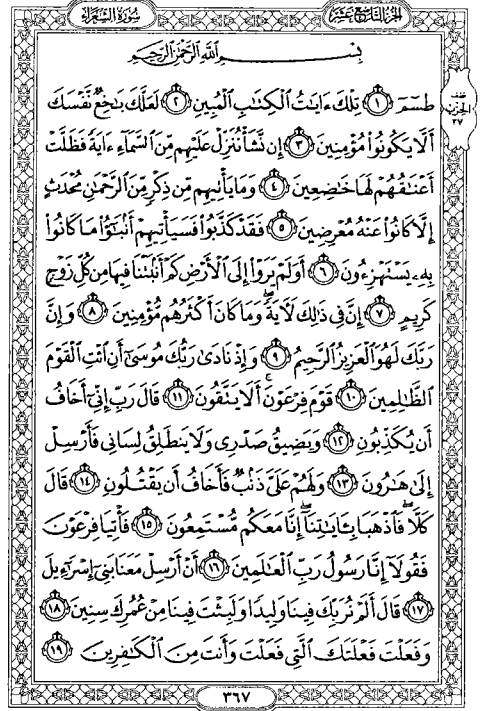 الجزء التاسع عشر
سورة الشعراء
بِسْمِ اللَّهِ الرَّحْمَٰنِ الرَّحِيمِ
نصف
الحزب
٣٧
طسٓمٓ ١ تِلْكَ ءَايَٰتُ ٱلْكِتَٰبِ ٱلْمُبِينِ ٢ لَعَلَّكَ بَٰخِعٌ نَّفْسَكَ
أَلَّا يَكُونُوا۟ مُؤْمِنِينَ ٣ إِن نَّشَأْ نُنَزِّلْ عَلَيْهِم مِّنَ ٱلسَّمَآءِ ءَايَةً فَظَلَّتْ
أَعْنَٰقُهُمْ لَهَا خَٰضِعِينَ ٤ وَمَا يَأْتِيهِم مِّن ذِكْرٍ مِّنَ ٱلرَّحْمَٰنِ مُحْدَثٍ
إِلَّا كَانُوا۟ عَنْهُ مُعْرِضِينَ ٥ فَقَدْ كَذَّبُوا۟ فَسَيَأْتِيهِمْ أَنۢبَٰٓؤُا۟ مَا كَانُوا۟
بِهِۦ يَسْتَهْزِءُونَ ٦ أَوَلَمْ يَرَوْا۟ إِلَى ٱلْأَرْضِ كَمْ أَنۢبَتْنَا فِيهَا مِن كُلِّ زَوْجٍ
كَرِيمٍ ٧ إِنَّ فِى ذَٰلِكَ لَءَايَةً ۖ وَمَا كَانَ أَكْثَرُهُم مُّؤْمِنِينَ ٨ وَإِنَّ
رَبَّكَ لَهُوَ ٱلْعَزِيزُ ٱلرَّحِيمُ ٩ وَإِذْ نَادَىٰ رَبُّكَ مُوسَىٰٓ أَنِ ٱئْتِ ٱلْقَوْمَ
ٱلظَّٰلِمِينَ ١٠ قَوْمَ فِرْعَوْنَ ۚ أَلَا يَتَّقُونَ ١١ قَالَ رَبِّ إِنِّىٓ أَخَافُ
أَن يُكَذِّبُونِ ١٢ وَيَضِيقُ صَدْرِى وَلَا يَنطَلِقُ لِسَانِى فَأَرْسِلْ
إِلَىٰ هَٰرُونَ ١٣ وَلَهُمْ عَلَىَّ ذَنۢبٌ فَأَخَافُ أَن يَقْتُلُونِ ١٤ قَالَ
كَلَّا ۖ فَٱذْهَبَا بِـَٔايَٰتِنَآ ۖ إِنَّا مَعَكُم مُّسْتَمِعُونَ ١٥ فَأْتِيَا فِرْعَوْنَ
فَقُولَآ إِنَّا رَسُولُ رَبِّ ٱلْعَٰلَمِينَ ١٦ أَنْ أَرْسِلْ مَعَنَا بَنِىٓ إِسْرَٰٓءِيلَ
١٧ قَالَ أَلَمْ نُرَبِّكَ فِينَا وَلِيدًا وَلَبِثْتَ فِينَا مِنْ عُمُرِكَ سِنِينَ ١٨
وَفَعَلْتَ فَعْلَتَكَ ٱلَّتِى فَعَلْتَ وَأَنتَ مِنَ ٱلْكَٰفِرِينَ ١٩
٣٦٧